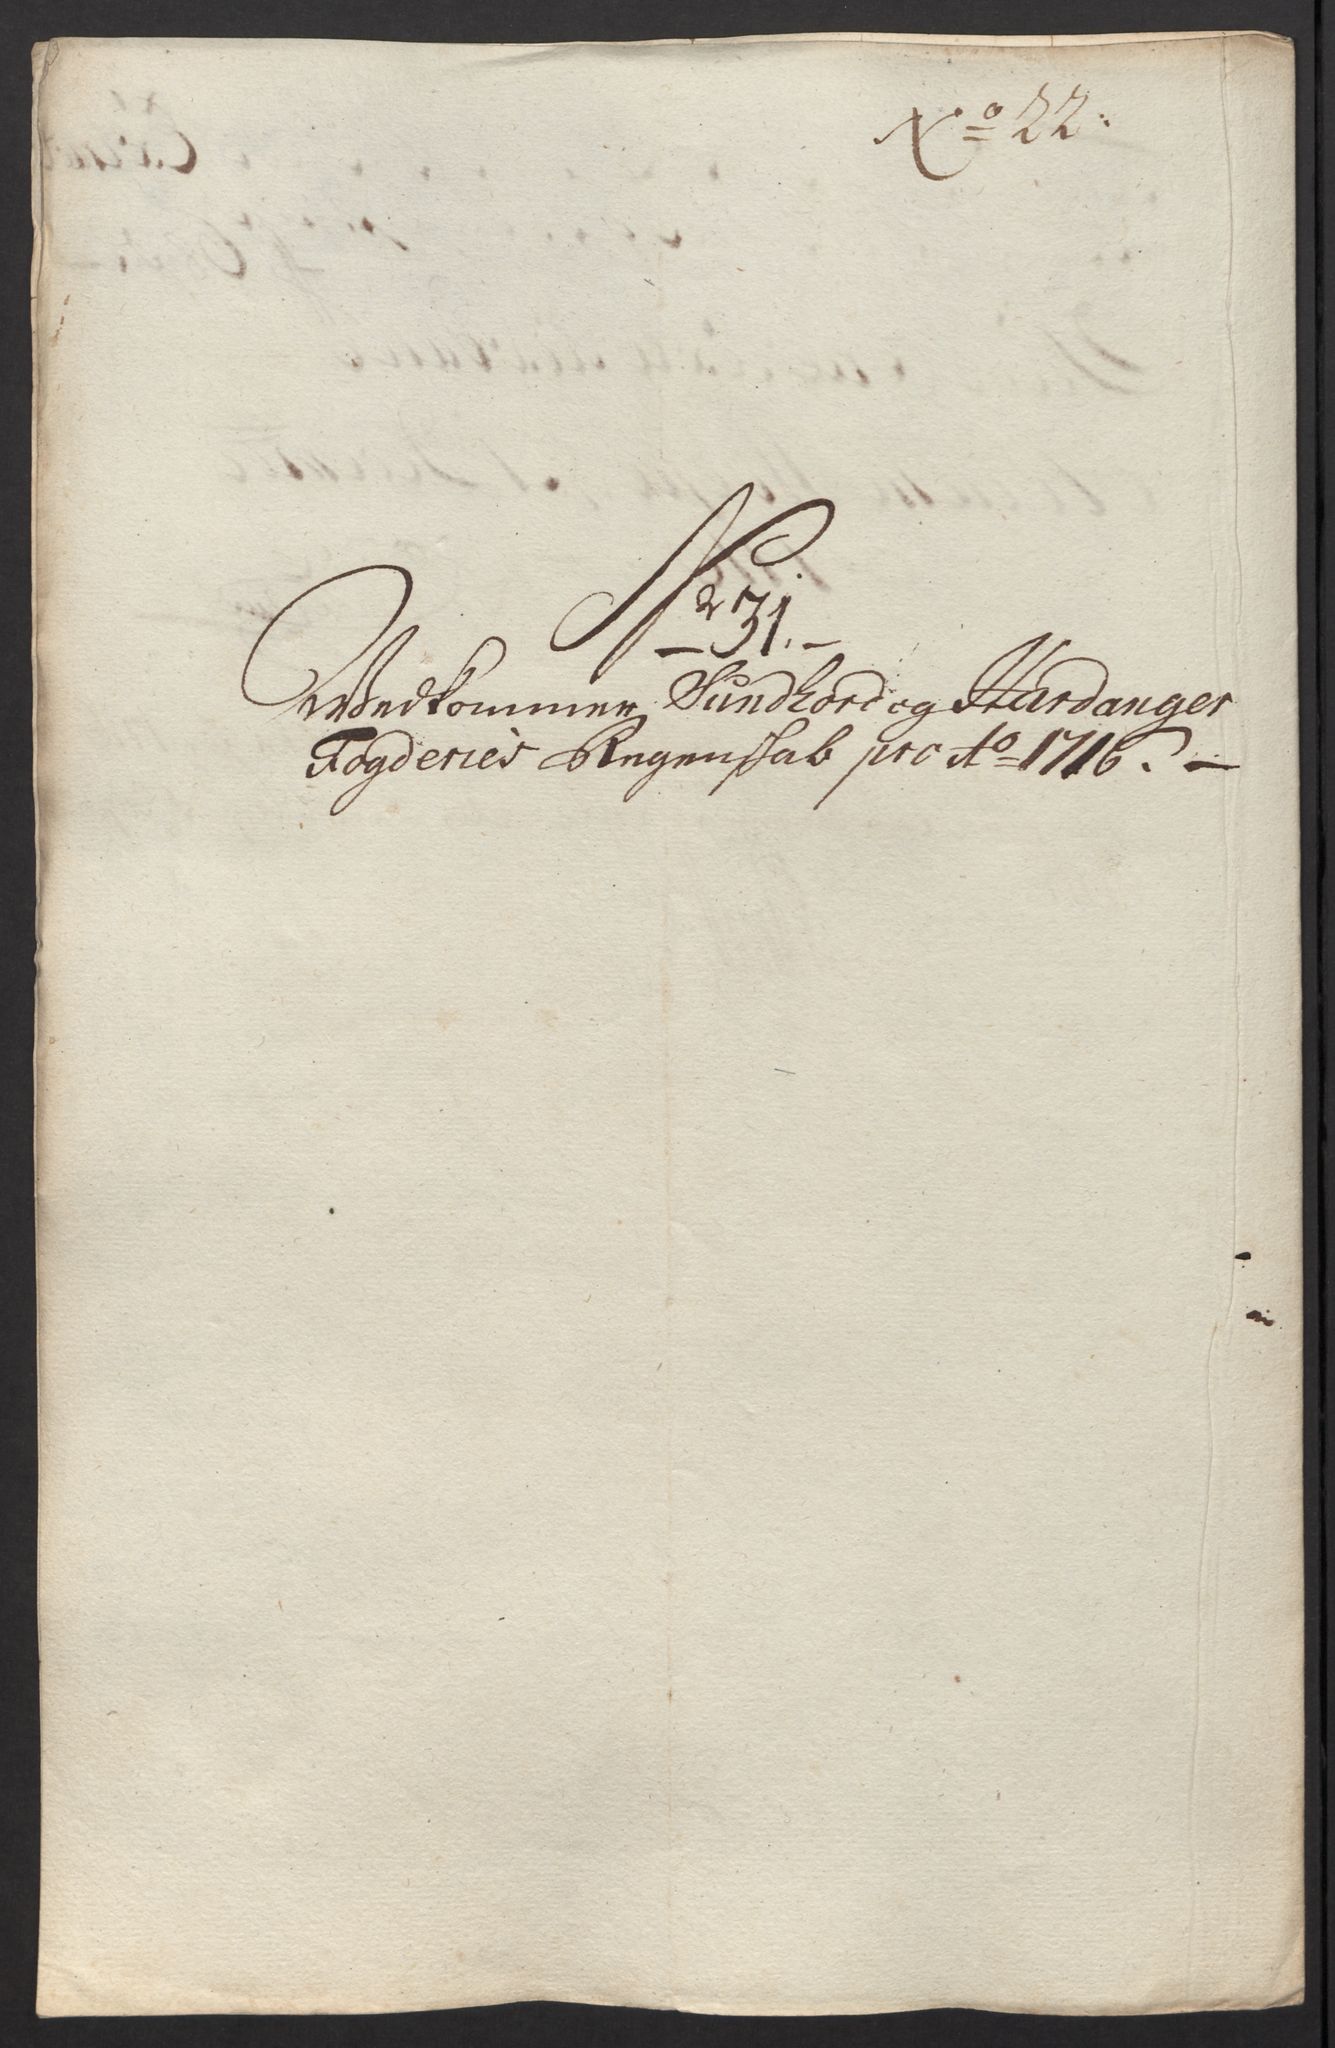 No 22:
No 31.
Wedkommer Sundhord og Hardanger
Fogderies Regenskab pro Ao 1716.